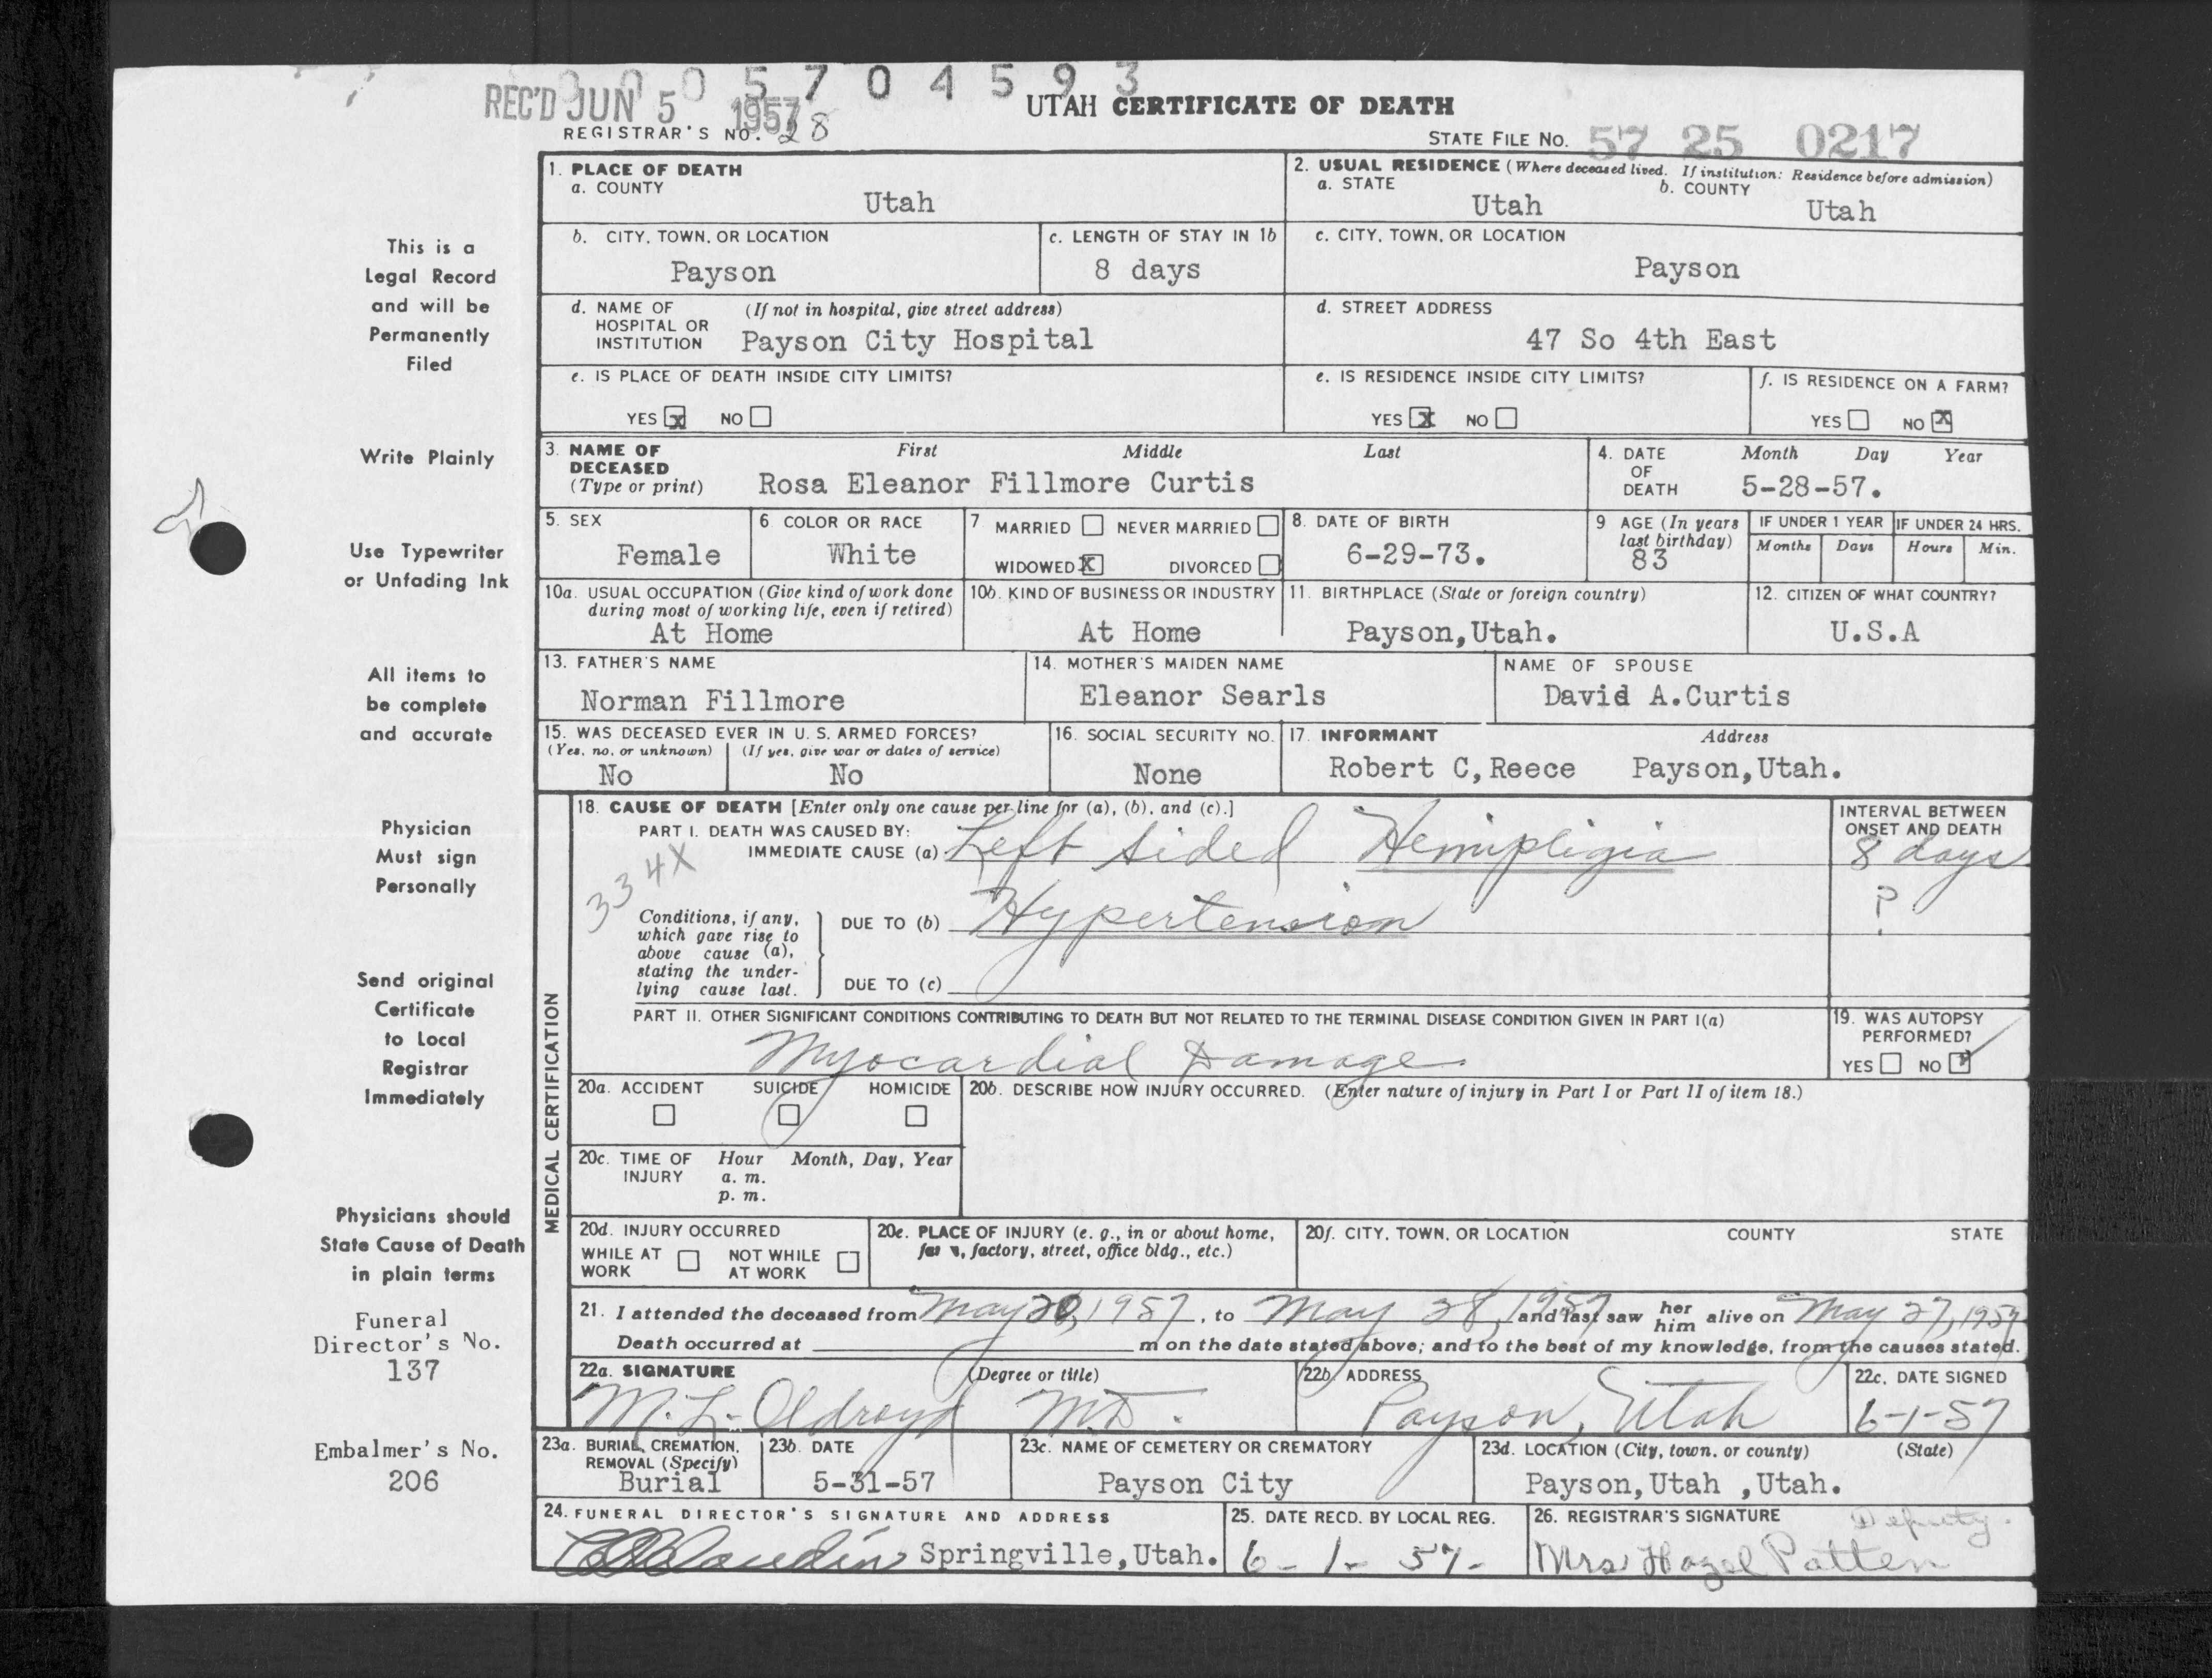 0 0 0 5 7 0 4 5 9 3
REC'D JUN 5 1957
UTAH CERTIFICATE OF DEATH
REGISTRAR'S NO. 28
STATE FILE NO. 57 25 0217
1. PLACE OF DEATH
a. COUNTY
Utah
2. USUAL RESIDENCE (Where deceased lived. If institution: Residence before admission)
a. STATE b. COUNTY
Utah Utah
b. CITY, TOWN, OR LOCATION
Payson
c. LENGTH OF STAY IN 1b
8 days
c. CITY, TOWN, OR LOCATION
Payson
d. NAME OF (If not in hospital, give street address)
HOSPITAL OR
INSTITUTION Payson City Hospital
d. STREET ADDRESS
47 So 4th East
e. IS PLACE OF DEATH INSIDE CITY LIMITS?
YES X NO
e. IS RESIDENCE INSIDE CITY LIMITS?
YES X NO
f. IS RESIDENCE ON A FARM?
YES NO X
3. NAME OF First Middle Last
DECEASED
(Type or print) Rosa Eleanor Fillmore Curtis
4. DATE Month Day Year
OF
DEATH 5-28-57.
5. SEX
Female
6. COLOR OR RACE
White
7 MARRIED NEVER MARRIED
WIDOWED X DIVORCED
8. DATE OF BIRTH
6-29-73.
9 AGE (In years
last birthday)
83
IF UNDER 1 YEAR IF UNDER 24 HRS.
Months Days Hours Min.
10a. USUAL OCCUPATION (Give kind of work done
during most of working life, even if retired)
At Home
10b. KIND OF BUSINESS OR INDUSTRY
At Home
11. BIRTHPLACE (State or foreign country)
Payson,Utah.
12. CITIZEN OF WHAT COUNTRY?
U.S.A
13. FATHER'S NAME
Norman Fillmore
14. MOTHER'S MAIDEN NAME
Eleanor Searls
NAME OF SPOUSE
David A.Curtis
15. WAS DECEASED EVER IN U. S. ARMED FORCES?
(Yes, no, or unknown) (If yes, give war or dates of service)
No No
16. SOCIAL SECURITY NO.
None
17. INFORMANT Address
Robert C,Reece Payson,Utah.
MEDICAL CERTIFICATION
18. CAUSE OF DEATH [Enter only one cause per line for (a), (b), and (c).]
INTERVAL BETWEEN
ONSET AND DEATH
PART I. DEATH WAS CAUSED BY:
IMMEDIATE CAUSE (a) Left sided Hemipligia 8 days
334X
Conditions, if any,
which gave rise to
above cause (a),
stating the under-
lying cause last.
DUE TO (b) Hypertension ?
DUE TO (c)
PART II. OTHER SIGNIFICANT CONDITIONS CONTRIBUTING TO DEATH BUT NOT RELATED TO THE TERMINAL DISEASE CONDITION GIVEN IN PART I(a)
Myocardial Damage
19. WAS AUTOPSY
PERFORMED?
YES NO ✓
20a. ACCIDENT SUICIDE HOMICIDE
20b. DESCRIBE HOW INJURY OCCURRED. (Enter nature of injury in Part I or Part II of item 18.)
20c. TIME OF Hour Month, Day, Year
INJURY a. m.
p. m.
20d. INJURY OCCURRED
WHILE AT NOT WHILE
WORK AT WORK
20e. PLACE OF INJURY (e. g., in or about home,
factory, street, office bldg., etc.)
20f. CITY, TOWN, OR LOCATION COUNTY STATE
21. I attended the deceased from May 20, 1957, to May 28, 1957 and last saw her him alive on May 27, 1957
Death occurred at m on the date stated above; and to the best of my knowledge, from the causes stated.
22a. SIGNATURE (Degree or title)
M. L. Oldroyd M.D.
22b. ADDRESS
Payson, Utah
22c. DATE SIGNED
6-1-57
23a. BURIAL, CREMATION,
REMOVAL (Specify)
Burial
23b. DATE
5-31-57
23c. NAME OF CEMETERY OR CREMATORY
Payson City
23d. LOCATION (City, town, or county) (State)
Payson,Utah ,Utah.
24. FUNERAL DIRECTOR'S SIGNATURE AND ADDRESS
Springville,Utah.
25. DATE RECD. BY LOCAL REG.
6-1-57-
26. REGISTRAR'S SIGNATURE Deputy.
Mrs Hazel Patten
This is a
Legal Record
and will be
Permanently
Filed
Write Plainly
Use Typewriter
or Unfading Ink
All items to
be complete
and accurate
Physician
Must sign
Personally
Send original
Certificate
to Local
Registrar
Immediately
Physicians should
State Cause of Death
in plain terms
Funeral
Director's No.
137
Embalmer's No.
206